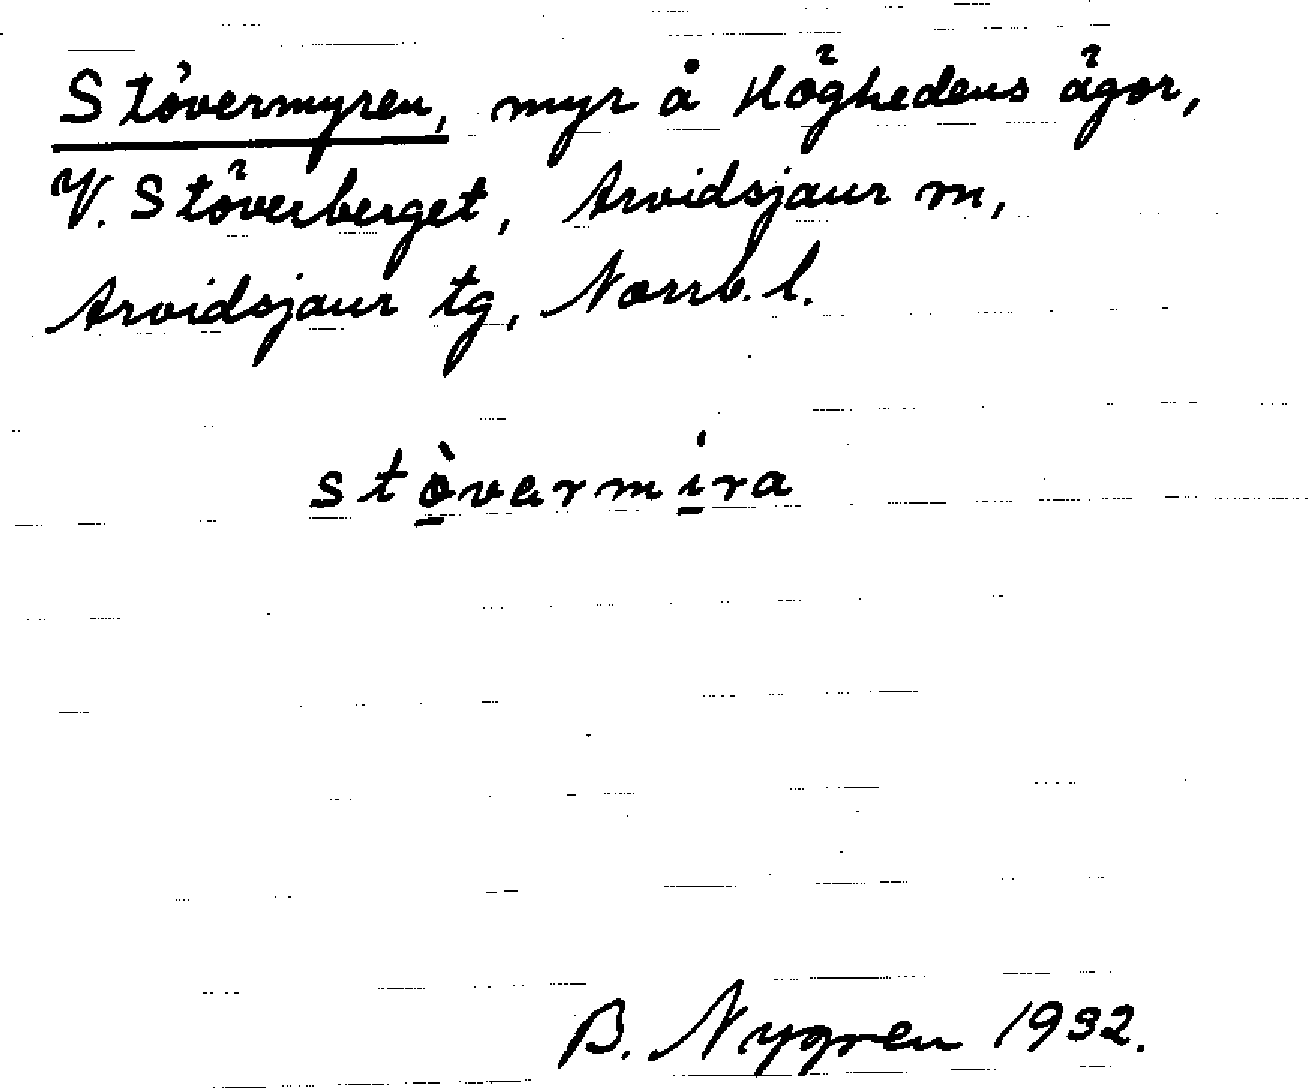 Stövermyren, myr å Höghedens ägor,
V. Stöverberget, Arvidsjaur sn,
Arvidsjaur tg, Norrb. l.
stòvermira
B. Nygren 1932.